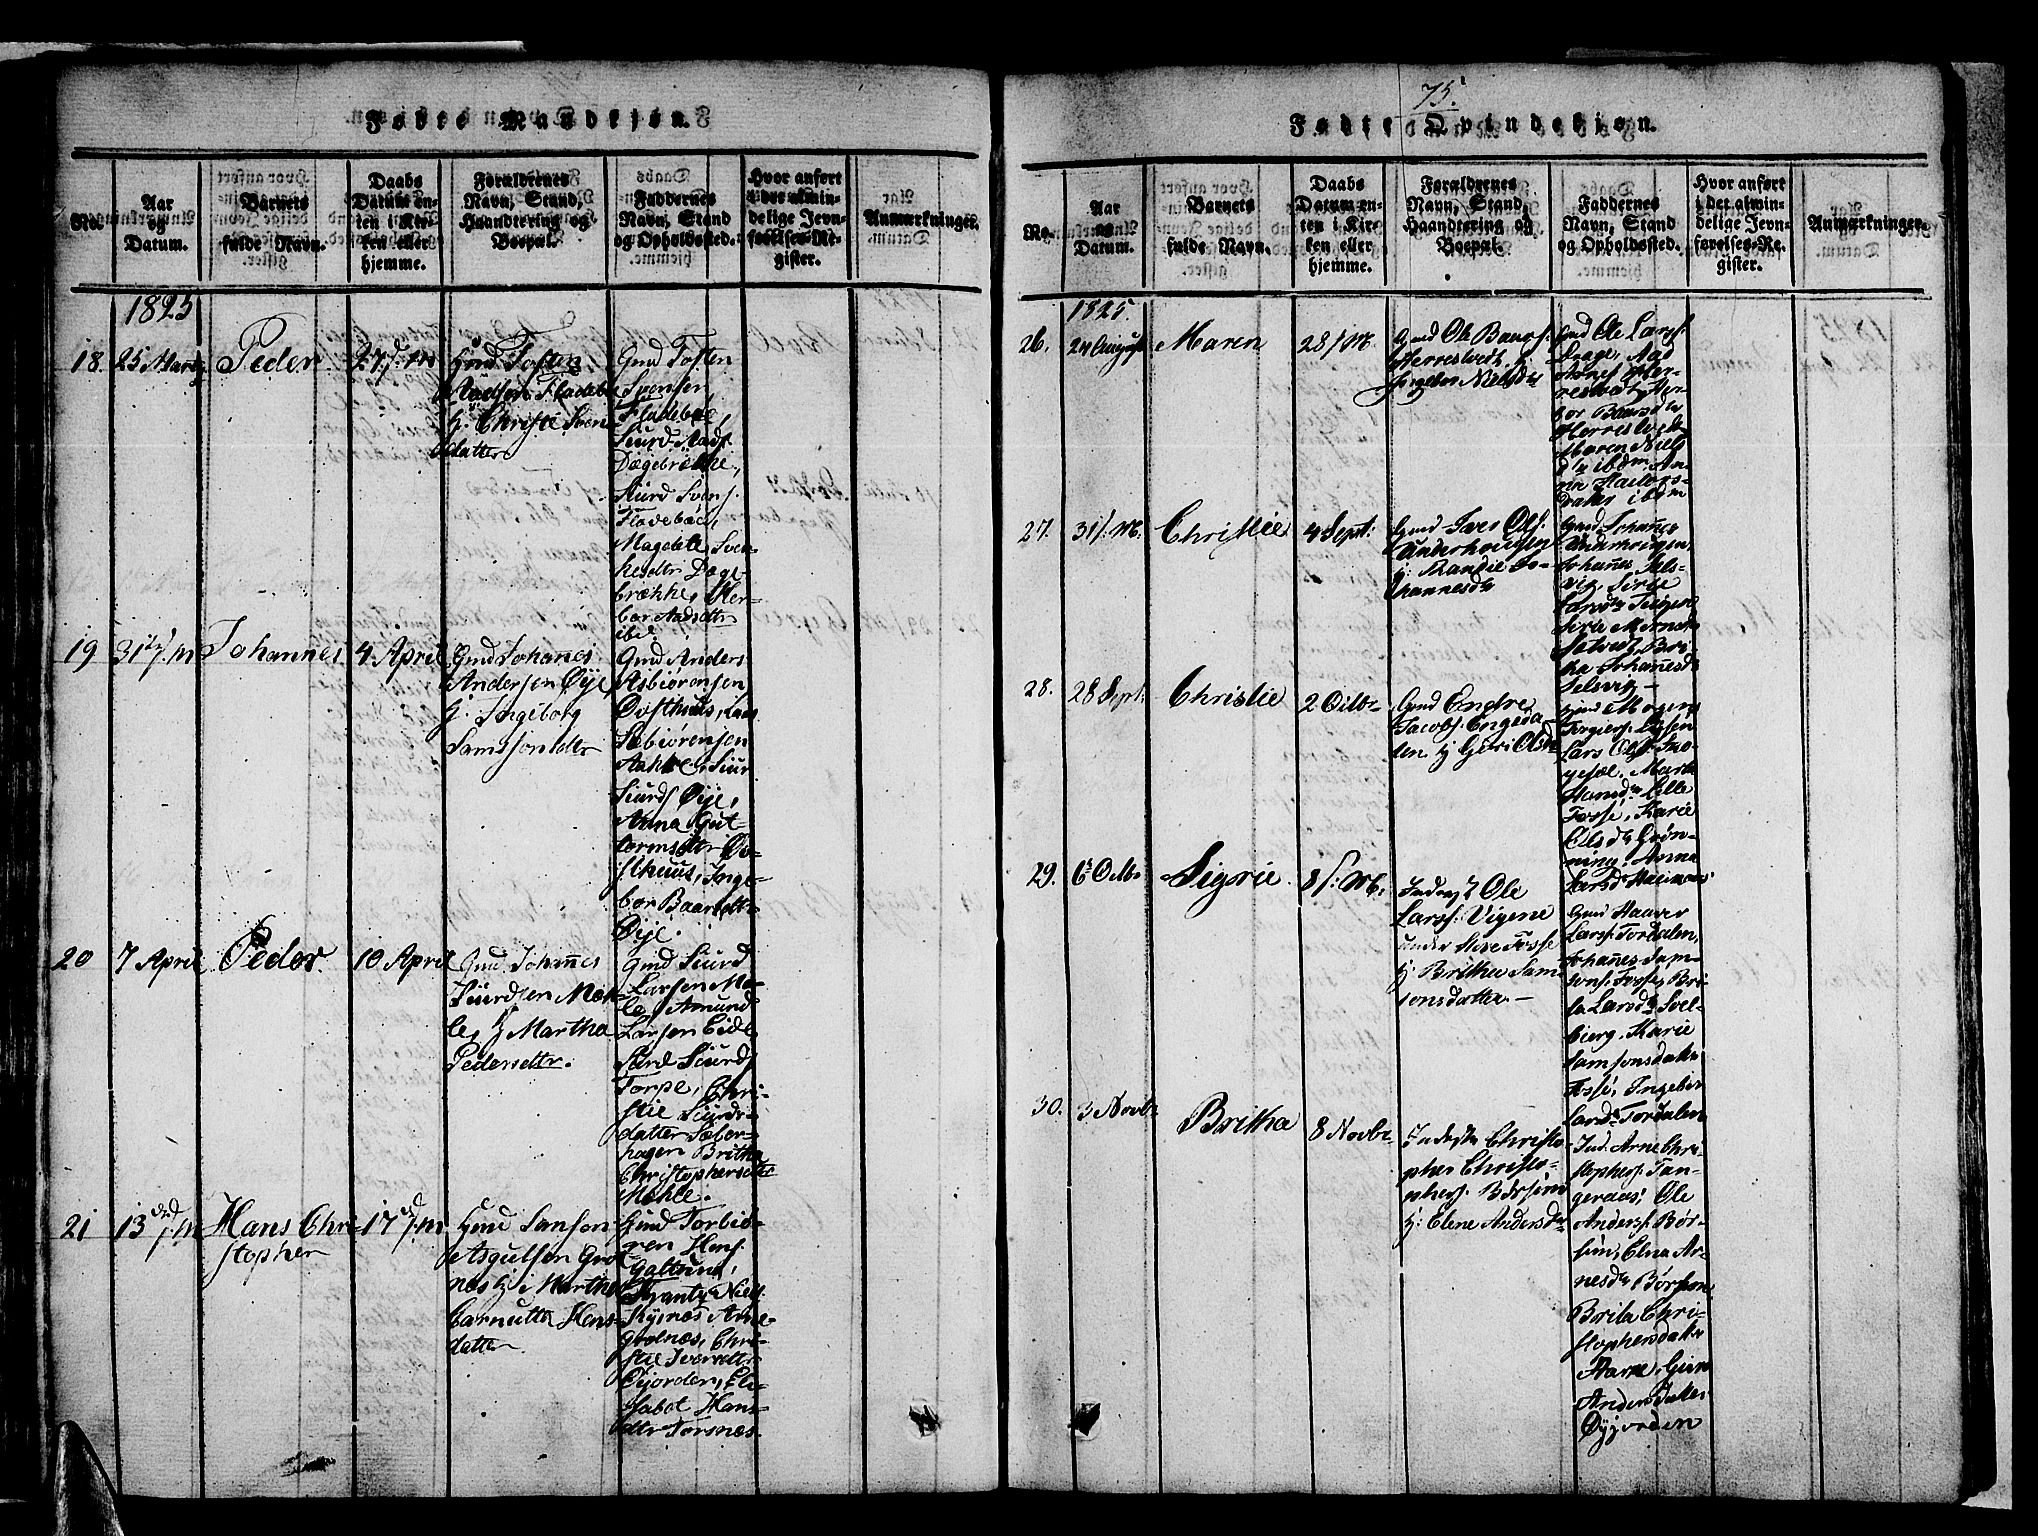 75.
Fødte Mandkiøn.
No.
Aar
og
Datum.
Barnets
fulde Navn.
Daabs
Datum en-
ten i Kir-
ken eller
hjemme.
Forældrenes
Navn, Stand,
Haandtering og
Boepæl.
Faddernes
Navn, Stand
og Opholdssted.
Hvor anført
i det almin-
delige Jevn-
førelses-Re-
gister.
Anmærkninger.
1825
18.
25 Martz
Peder
27 d. m
Gmd Tosten
Aadsen Fladebø
h: Christi Svens
datter
Gmd Tosten
Svensen
Fladebøe,
Siurd Aads.
Døgebrække,
Siurd Svens.
Fladebøe,
Magdele Sven-
nesdtr Døge-
brække, Her-
bor Aadsdtr
ibd.
19
31 d. m
Johannes
4 April
Gmd Johanes
Andersen Øye
h: Ingeborg
Samssondtr
Gmd Anders
Asbiørensen
Østhuus, Lars
Sebiørensen
Aakre, Siur
Siurds Øye,
Anna Gut-
tormsdtr Øs-
sthuus, Inge-
bor Baarsdtr
Øye.
20
7 April
Peder
10 April
Gmd Johanes
Siurdsen Mæh-
le, h Martha
Pedersdtr.
Gmd Siurd
Larsen Mæ-
le, Amund
Larsen Eide
Siurd Siurds
Torpe, Chri-
stie Siurds-
datter Sæber-
hagen Britha
Christophersdtr
Mehle.
21
13 d. m
Hans Chri-
stopher
17 d. m
Gmd Sanson
Asgutsen Gro-
næs h: Marthe
Carnutta Hans-
datter
Gmd Torbiø-
ren Hans.
Galtund,
Frantz Niels.
Kysnæs Arne
Gronæs, Chri-
stie Iversdtr
Øyorden, Eli-
sabet Hans-
dtr Torsnæs.
Fødte Qvindekiøn.
No.
Aar
og
Datum.
Barnets
fulde Navn.
Daabs
Datum en-
ten i Kir-
ken eller
hjemme.
Forældrenes
Navn, Stand,
Haandtering og
Boepæl.
Faddernes
Navn, Stand
og Opholdssted.
Hvor anført
i det almin-
delige Jevn-
førelses-Re-
gister.
Anmærkninger.
1825.
26.
24 August
Maren
28 s. M.
Gmd Ole Baars.
Herresvedt, h:
Ingebor Nielsdtr
Gmd Ole Lars.
Drage, Aad
Herres-
Baarsdtr
Herresvedt
Maren Niels
dtr ibdm An-
na
datter ibdm
27.
31 s. M.
Christie
4 Sept:
Gmd Iver Ols.
Underhougen
h: Randie Jo-
hannesdtr
Gmd Johanes
Underhougen,
Johanes Sels-
vig, Sirie
Larsdtr Teigen
Bri-
tha Johanesdtr
Selsvig –
28.
28 Sept:
Christie
2 Octbr
Gmd Endre
Jacobs. Engeda-
len h Guri Olsdtr
Gmd Mogens
Torgiers.
Lars Ols.
Martha
Hansdtr Lille
Fosse, Karie
Olsdtr Grøn-
ning, Anna
Larsdtr
29.
6 Octbr
Sigrie
8 s. M.
Inderst Ole
Lars. Vigene
under Store Fosse
h: Britha Sam-
sonsdatter –
Gmd Haaver
Lars. Tordalen,
Johanes Sam-
sons. Fosse, Bri-
ta Larsdtr Soel-
bierg, Karie
Samsonsdatter
Fosse, Ingebor
Larsdtr Tordalen
30.
3 Novbr
Britha
8 Novbr
Inderste Christo-
pher Christo-
phers. Børsem
h: Elene Andersdtr
Ind. Arne Chri-
stophers. Tan-
geraas, Ole
Anders. Bør-
sem, Elna Ar-
nesdtr Børsem
Brita Chri-
stophersdatter
Aarre, Guri
Andersdatter
Øyjorden